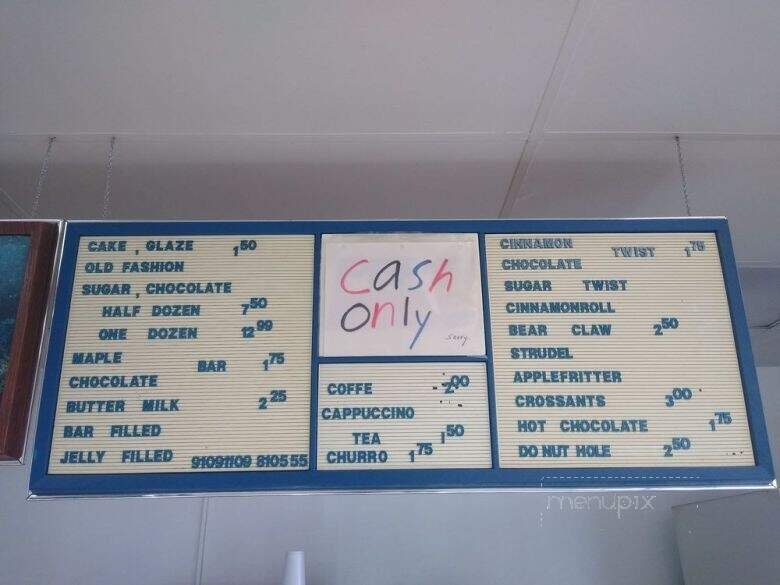 CAKE , GLAZE 1 50
OLD FASHION
SUGAR , CHOCOLATE
HALF DOZEN 7 50
ONE DOZEN 12 99
MAPLE
BAR 1 75
CHOCOLATE
BUTTER MILK 2 25
BAR FILLED
JELLY FILLED
cash
only
sorry
COFFE - 2 00
CAPPUCCINO
TEA 1 50
CHURRO 1 75
CINNAMON
TWIST 1 75
CHOCOLATE
SUGAR TWIST
CINNAMONROLL
BEAR CLAW 2 50
STRUDEL
APPLEFRITTER
CROSSANTS 3 00
HOT CHOCOLATE 1 75
DO NUT HOLE 2 50
menupix